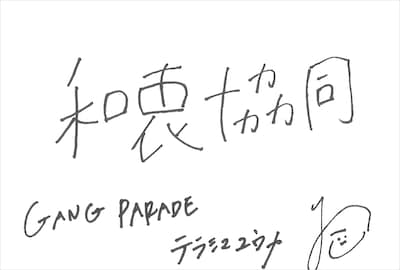 和衷協同
GANG PARADE
テラシマユウカ